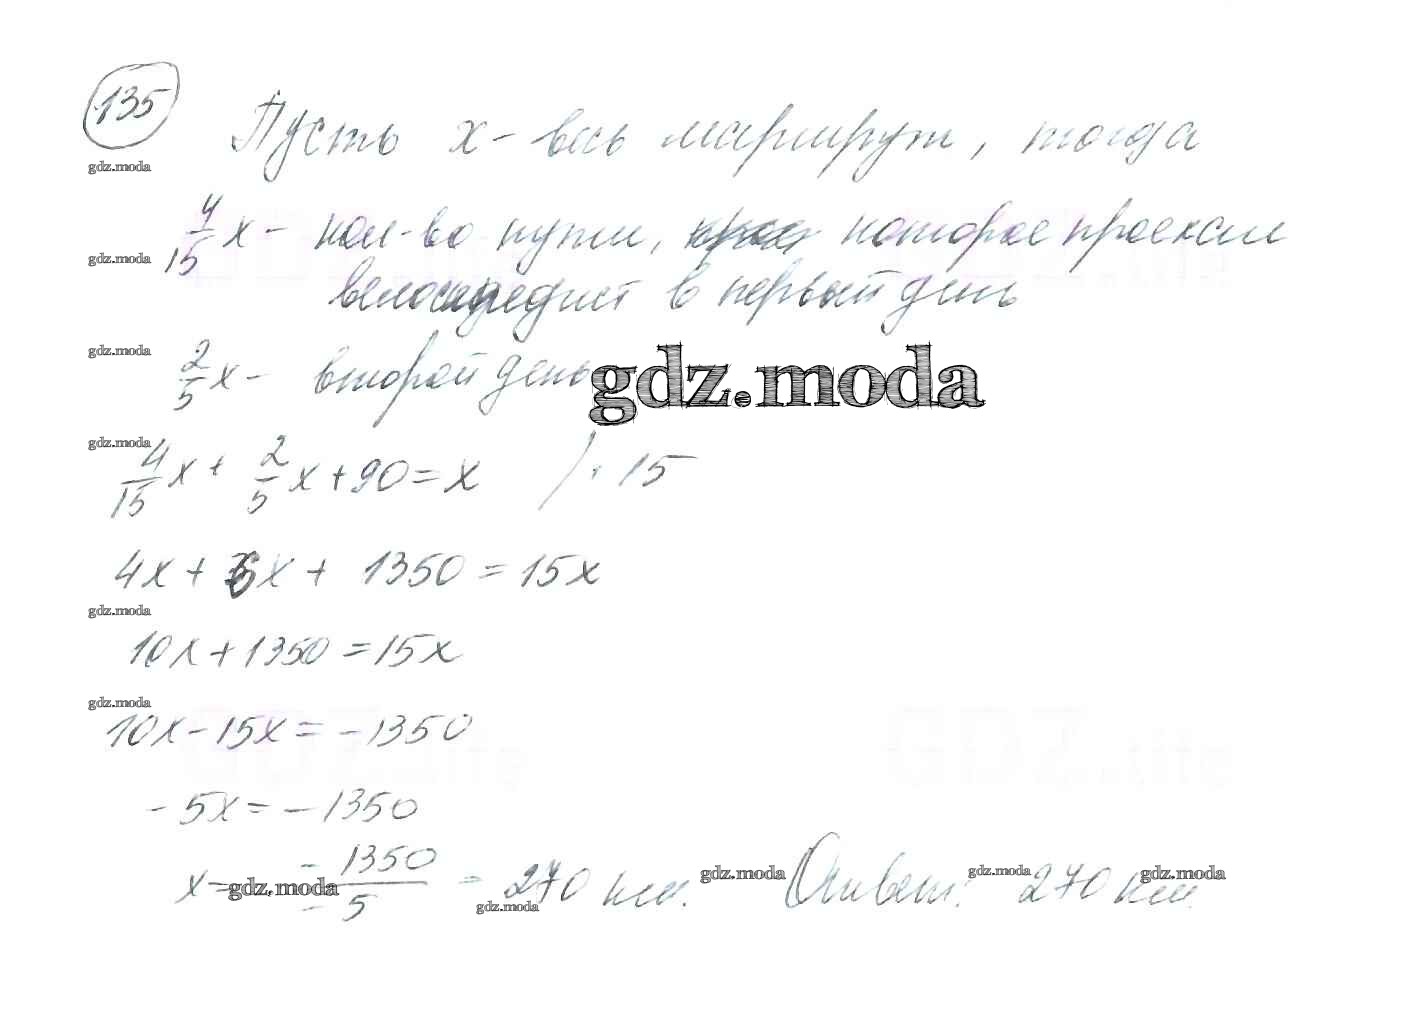 135
Пусть x - весь маршрут, тогда
gdz.moda
4/15 x - кол-во пути, которое проехал
gdz.moda
велосипедист в первый день
gdz.moda
2/5 x - второй день
gdz.moda
gdz.moda
4/15 x + 2/5 x + 90 = x / · 15
4x + 6x + 1350 = 15x
gdz.moda
10x + 1350 = 15x
gdz.moda
10x - 15x = -1350
GDZ.life GDZ.life
- 5x = - 1350
x = -1350/-5 = 270 км. Ответ: 270 км.
gdz.moda gdz.moda gdz.moda gdz.moda gdz.moda